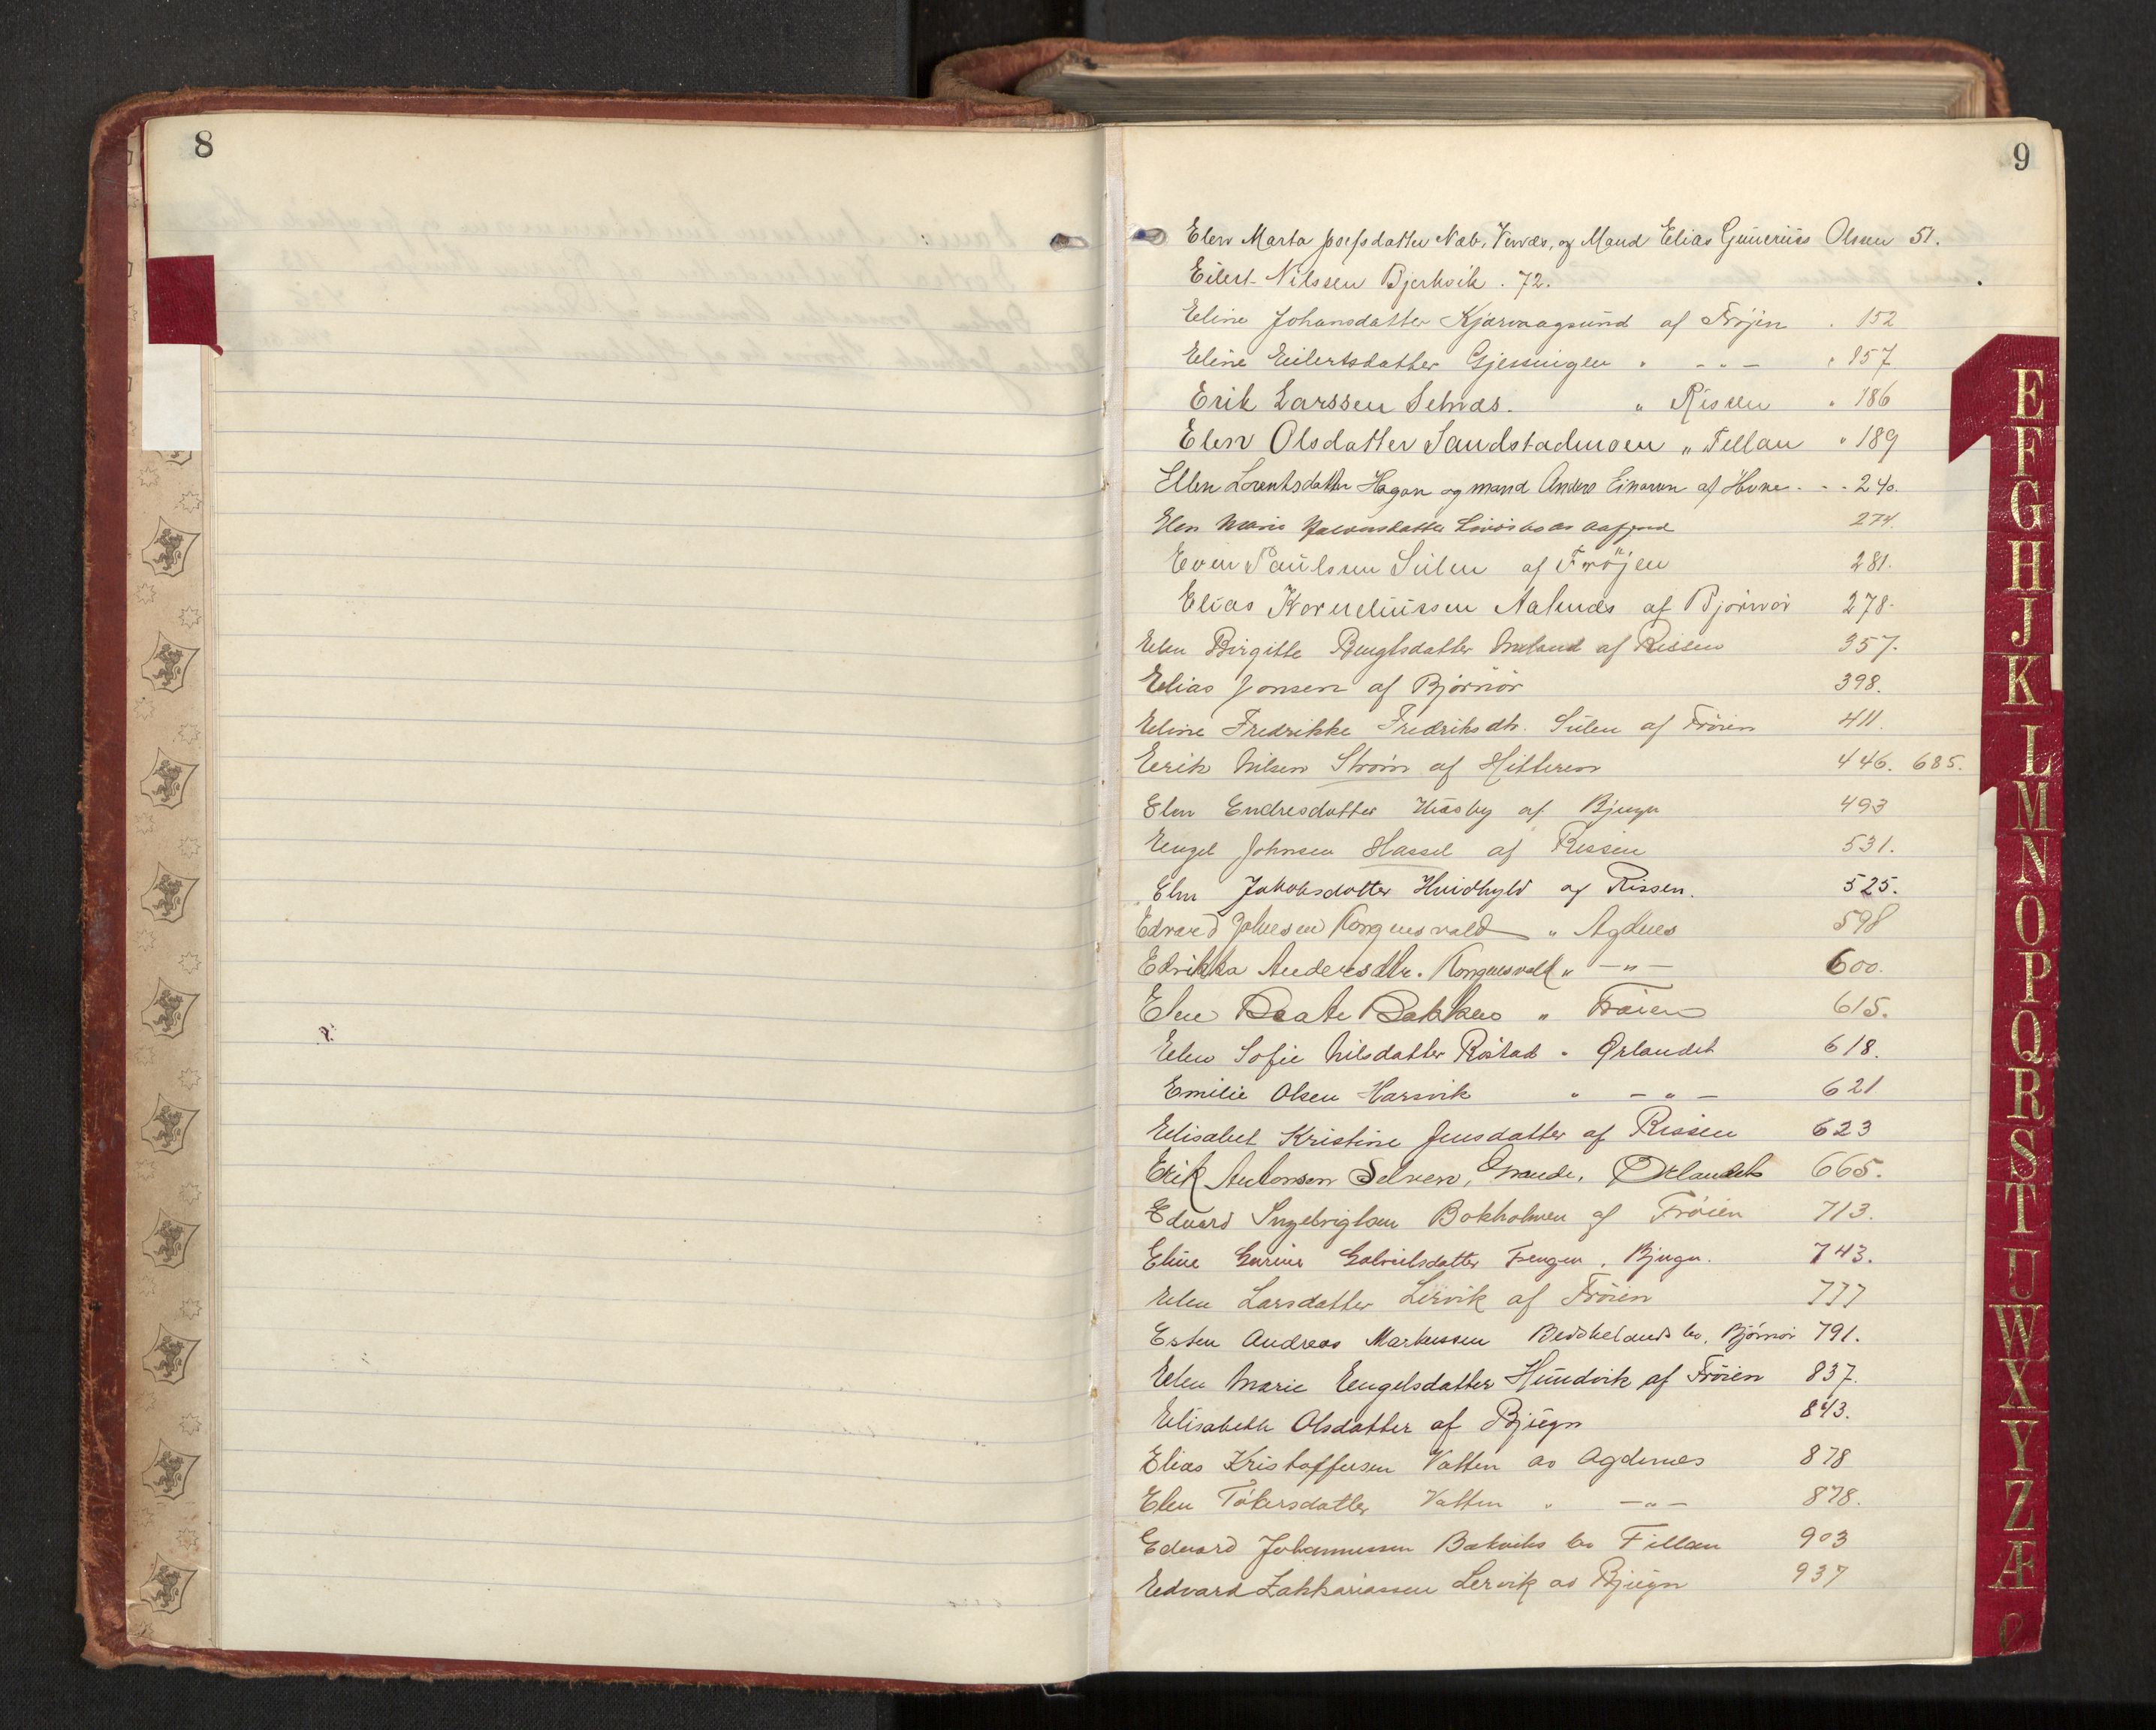 8
9
Elen Marta Josefsdatter Næb, Vernæs, og Mand Elias Gunerius Olsen 51.
Eilert Nilssen Bjerkvik. 72.
Eline Johansdatter Kjærvaagsund af Fröjen . 152
Eline Eilertsdatter Gjessingen " - " - " 157
Erik Larssen Selnæs. " Rissen " 186
Elen Olsdatter Sandstadmoen " Fillan " 189
Ellen Lorentsdatter Hagan og mand Anders Einarsen af Hevne - - 240.
Elen Marie 274.
Even Paulsen Sulen af Fröjen 281.
Elias Korneliussen Aalnæs af Bjørnør 278.
Elen Birgitte Bengtsdatter af Rissen 357.
Elias Jonsen af Bjørnør 398.
Eline Fredrikke Fredriksdtr. Sulen af Frøien 411.
Erik Nilsen Strøm af Hitteren 446. 685.
Elen Endresdatter Husby af Bjugn 493
Engel Johnsen Hassel af Rissen 531.
Elen Jakobsdatter Hvidhyld af Rissen. 525.
Edvard Johnsen Kongensvold " Agdnes 598
Edrikka Andersdtr. Kongensvold " - " - 600.
Elen Beate Bakken " Frøien 615.
Elen Sofie Nilsdatter Röstad " Ørlandet 618.
Emilie Olsen Harsvik " - " - 621
Elisabet Kristine Jensdatter af Rissen 623
Erik Antonsen Selven, Grande, Ørlandet 665.
Edvard Ingebrigtsen Bokholmen af Frøien 713.
Eline Gurine Gabrielsdatter Fengen, Bjugn. 743.
Elen Larsdatter Lervik af Frøien 777
Esten Andreas Markussen bo, Bjørnør 791.
Elen Marie Engelsdatter Hundvik af Frøien 837.
Elisabeth Olsdatter af Bjugn 843.
Elias Kristoffersen Vatten av Agdenes 878
Elen Tökersdatter Vatten " - " - 878.
Edvard Johannessen Bakviks bo Fillan 903
Edvard Zakkariassen Lervik av Bjugn 937
E
F
G
H
J
K
L
M
N
O
P
Q
R
S
T
U
W
X
Y
Z
Æ
Ø